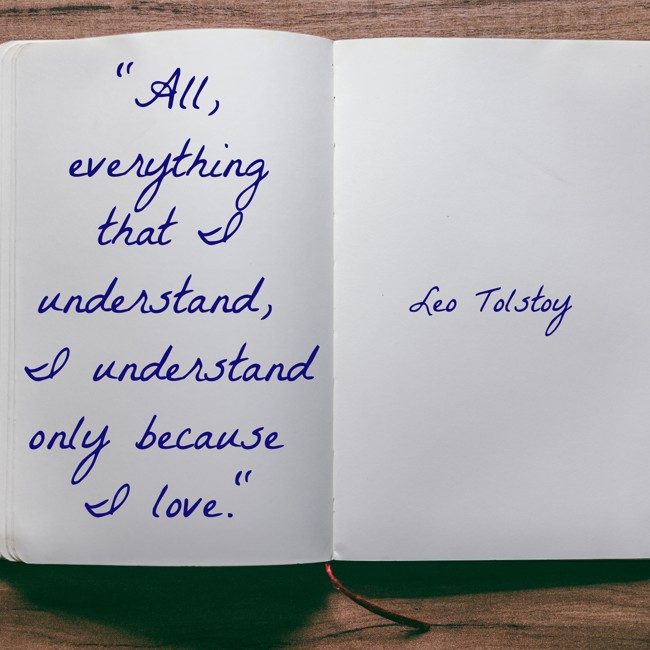 “All,
everything
that I
understand,
I understand
only because
I love.”
Leo Tolstoy